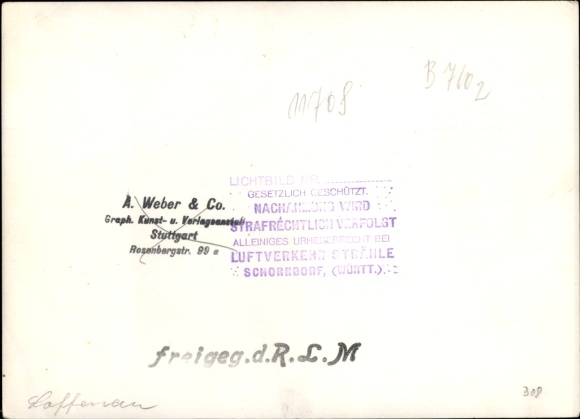 B 7602
11708
A. Weber & Co.
Graph. Kunst- u. Verlagsanstalt
Stuttgart
Rosenbergstr. 99 a
LICHTBILD NR.
GESETZLICH GESCHÜTZT.
NACHAHMUNG WIRD
STRAFRECHTLICH VERFOLGT
ALLEINIGES URHEBERRECHT BEI
LUFTVERKEHR STRÄHLE
SCHORNDORF, (WÜRTT.)
freigeg. d. R. L. M
Loffenau
308